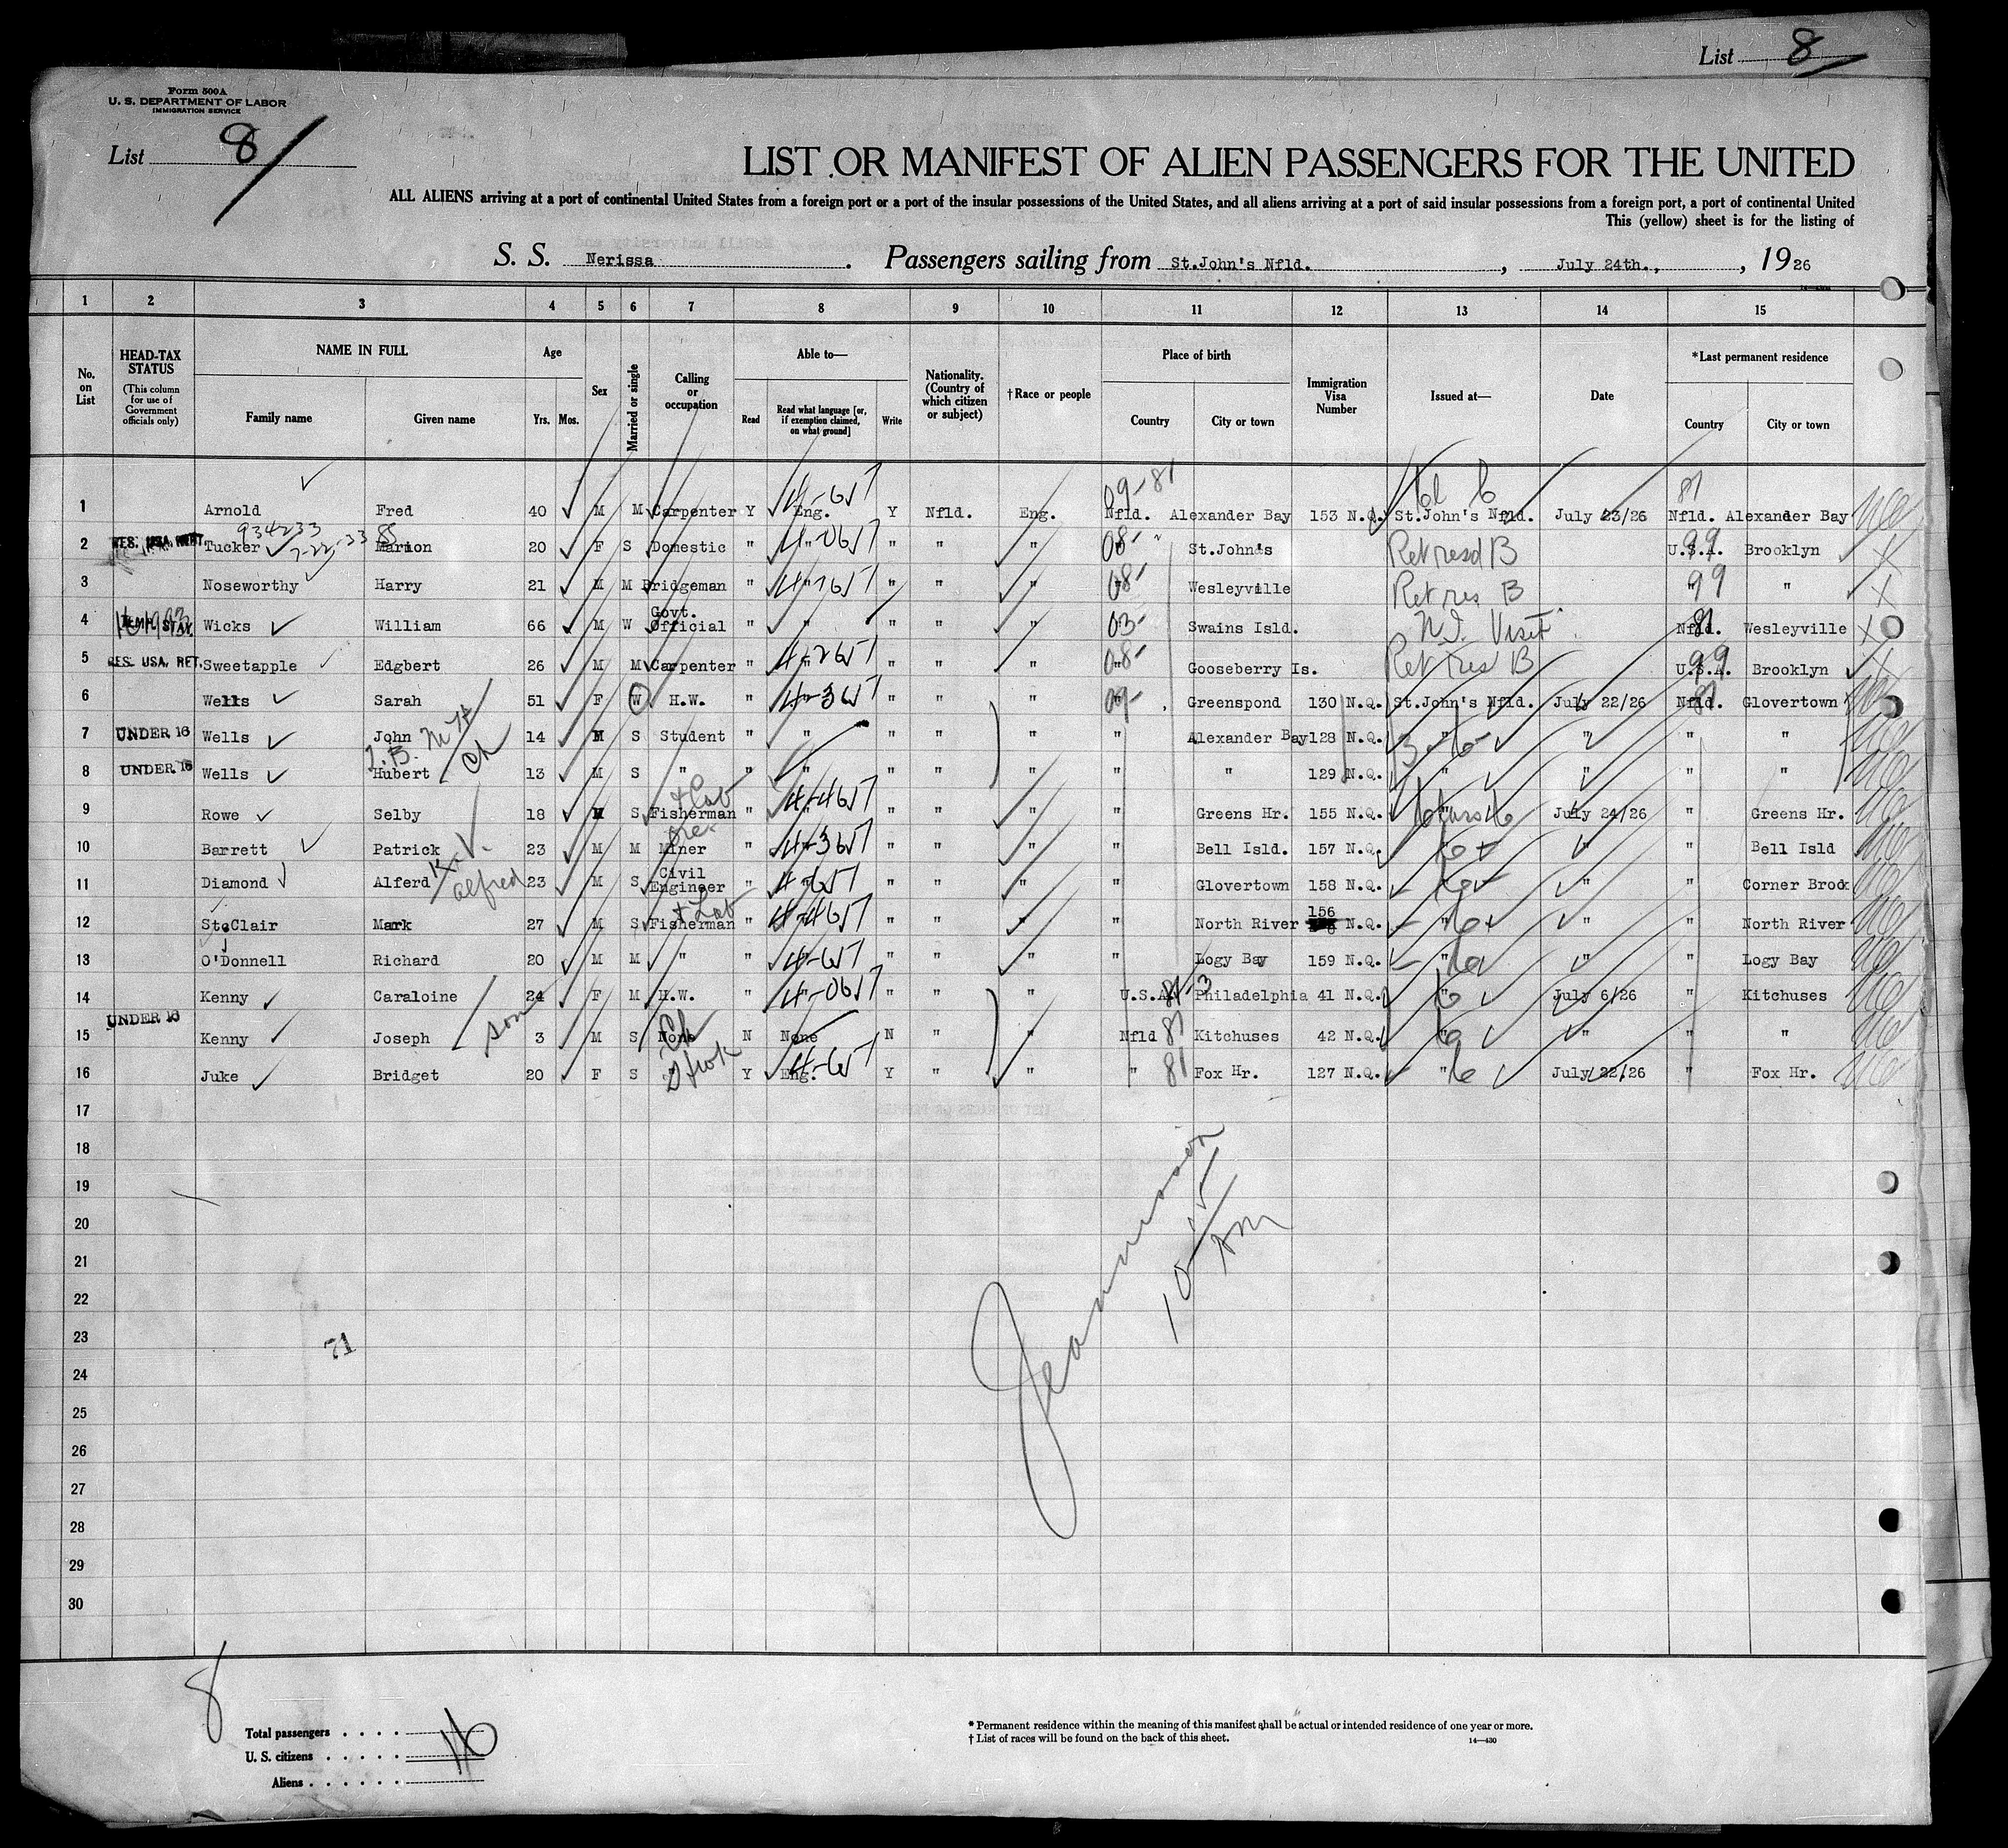 List 8
Form 500A
U. S. DEPARTMENT OF LABOR
IMMIGRATION SERVICE
List 8
LIST OR MANIFEST OF ALIEN PASSENGERS FOR THE UNITED
ALL ALIENS arriving at a port of continental United States from a foreign port or a port of the insular possessions of the United States, and all aliens arriving at a port of said insular possessions from a foreign port, a port of continental United
This (yellow) sheet is for the listing of
S. S. Nerissa. Passengers sailing from St.John's Nfld., July 24th., , 1926
1 2 3 4 5 6 7 8 9 10 11 12 13 14 15
No. on List
HEAD-TAX STATUS
(This column for use of Government officials only)
NAME IN FULL
Family name Given name
Age
Yrs. Mos.
Sex
Married or single
Calling or occupation
Able to—
Read
Read what language [or, if exemption claimed, on what ground]
Write
Nationality. (Country of which citizen or subject)
† Race or people
Place of birth
Country City or town
Immigration Visa Number
Issued at—
Date
*Last permanent residence
Country City or town
1 Arnold Fred 40 M M Carpenter Y Eng. 4-657 Y Nfld. Eng. 09-81 Nfld. Alexander Bay 153 N.Q. St.John's Nfld. July 23/26 81 Nfld. Alexander Bay
934233 7-22-33
2 RES. USA. RET. Tucker Marion 20 F S Domestic " " 4-0657 " " " 08- " St.John's Ret resd B U.S.A. 99 Brooklyn X
3 Noseworthy Harry 21 M M Bridgeman " " 4-7657 " " " 08- " Wesleyville Ret res B " 99 " X
4 TEMP. STAY. Wicks William 66 M W Govt. Official " " " " " 03- Swains Isld. Visit Nfld. 81 Wesleyville X
5 RES. USA. RET. Sweetapple Edgbert 26 M M Carpenter " " 4-2657 " " " 08- Gooseberry Is. Ret res B U.S.A. 99 Brooklyn X
6 Wells Sarah 51 F W H.W. " " 4-3657 " " " 09- Greenspond 130 N.Q. St.John's Nfld. July 22/26 Nfld. 81 Glovertown
7 UNDER 16 Wells John 14 M S Student " " " " " " Alexander Bay 128 N.Q. " " " "
8 UNDER 16 Wells Hubert Ch 13 M S " " " " " " " " 129 N.Q. " " " "
9 Rowe Selby 18 M S Fisherman + Lab " " 4-4657 " " " " Greens Hr. 155 N.Q. " July 24/26 " Greens Hr.
10 Barrett Patrick 23 M M Miner " " 4-3657 " " " " Bell Isld. 157 N.Q. " " " Bell Isld
11 Diamond Alferd alfred 23 M S Civil Engineer " " 4-657 " " " " Glovertown 158 N.Q. " " " Corner Brook
12 St.Clair Mark 27 M S Fisherman + Lab " " 4-4657 " " " " North River 156 N.Q. " " " North River
13 O'Donnell Richard 20 M M " " " 4-657 " " " " Logy Bay 159 N.Q. " " " Logy Bay
14 Kenny Caraloine 24 F M H.W. " " 4-0657 " " " U.S.A. Philadelphia 41 N.Q. " July 6/26 " Kitchuses
15 UNDER 16 Kenny Joseph son 3 M S None Ch N None N " " Nfld 81 Kitchuses 42 N.Q. " " " "
16 Juke Bridget 20 F S " Y Eng. 4-657 Y " " " 81 Fox Hr. 127 N.Q. " July 22/26 " Fox Hr.
17
18
19
20
21
22
23
24
25
26
27
28
29
30
10 15 AM
71
8
Total passengers . . . .
U. S. citizens . . . . .
Aliens . . . . . .
16
* Permanent residence within the meaning of this manifest shall be actual or intended residence of one year or more.
† List of races will be found on the back of this sheet.
14—430